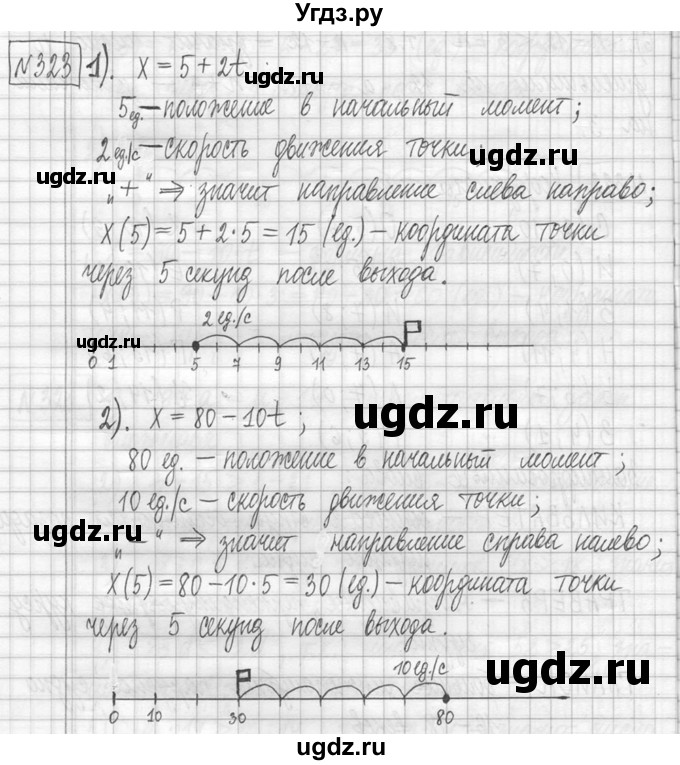 Угдз.ру
№323 1). x = 5 + 2t ;
ugdz.ru
5 ед. — положение в начальный момент;
2 ед/с — скорость движения точки;
ugdz.ru
ugdz.ru
„+“ ⇒ значит направление слева направо;
x(5) = 5 + 2·5 = 15 (ед.) — координата точки
ugdz.ru
через 5 секунд после выхода.
2 ед./с
ugdz.ru
0 1 5 7 9 11 13 15
ugdz.ru
2). x = 80 – 10t ;
ugdz.ru
80 ед. — положение в начальный момент;
10 ед/с — скорость движения точки;
ugdz.ru
„–“ ⇒ значит направление справа налево;
x(5) = 80 – 10·5 = 30 (ед.) — координата точки
ugdz.ru
через 5 секунд после выхода.
10 ед./с
ugdz.ru
0 10 30 80
ugdz.ru